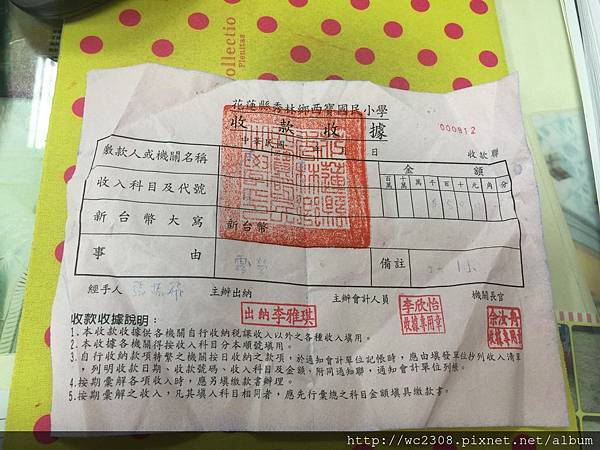 collectio
Plenitas
花蓮縣秀林鄉西寶國民小學
收款收據
000812
中華民國 年 日 收款聯
繳款人或機關名稱 金額
收入科目及代號 百萬 十萬 萬 千 百 十 元 角 分
新台幣大寫 新台幣
事由 露營 備註
經手人 主辦出納 主辦會計人員 機關長官
出納李雅琪
李欣怡
收據專用章
余汝舟
收據專用章
收款收據說明：
1.本收款收據供各機關自行收納稅課收入以外之各種收入填用。
2.本收據各機關得按收入科目分本順號填用。
3.自行收納款項特繁之機關按日收納之款項，於通知會計單位記帳時，應由填發單位抄列收入清單
，列明收款日期、收款號碼、收入科目及金額，附同通知聯，通知會計單位列帳。
4.按期彙解各項收入時，應另填繳款書辦理。
5.按期彙解之收入，凡其填入科目相同者，應先行彙總之科目金額填具繳款書。
http://wc2308.pixnet.net/album